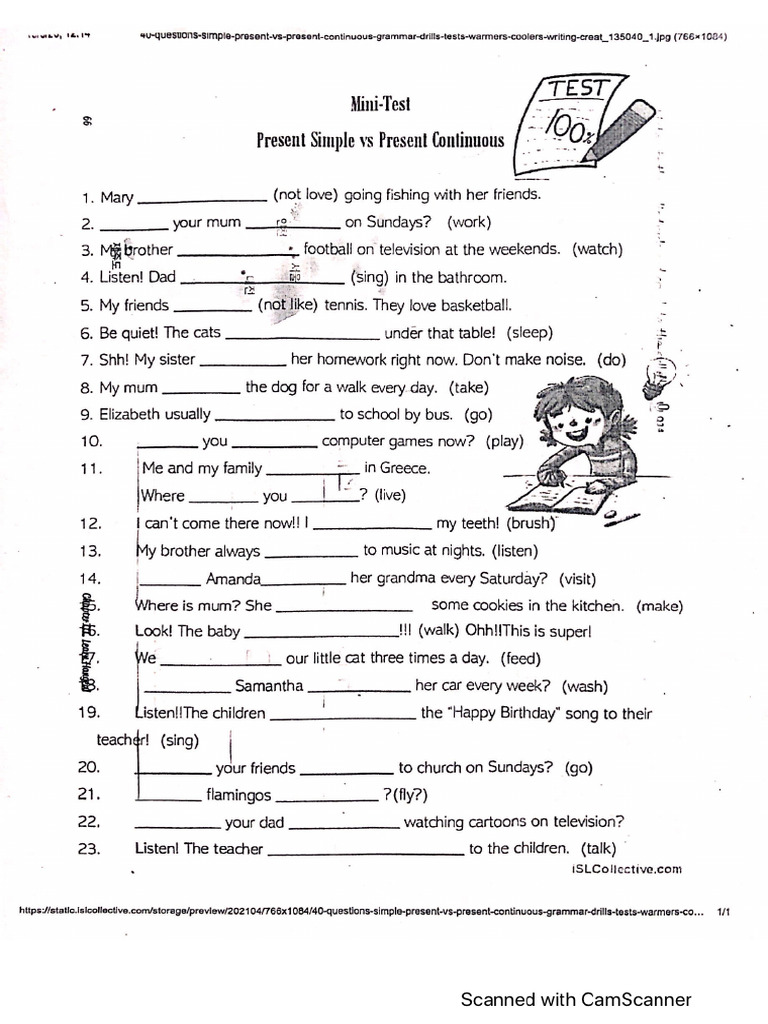 40-questions-simple-present-vs-present-continuous-grammar-drills-tests-warmers-coolers-writing-creat_135040_1.jpg (766×1084)
TEST
100%
Mini-Test
Present Simple vs Present Continuous
1. Mary ____________ (not love) going fishing with her friends.
2. ________ your mum __________ on Sundays? (work)
3. My brother ____________ football on television at the weekends. (watch)
4. Listen! Dad ________________ (sing) in the bathroom.
5. My friends ________ (not like) tennis. They love basketball.
6. Be quiet! The cats ________________ under that table! (sleep)
7. Shh! My sister _________ her homework right now. Don't make noise. (do)
8. My mum ________ the dog for a walk every day. (take)
9. Elizabeth usually ____________ to school by bus. (go)
10. _______ you _________ computer games now? (play)
11. Me and my family __________ in Greece.
Where _______ you _______? (live)
12. I can't come there now!! I ____________ my teeth! (brush)
13. My brother always __________ to music at nights. (listen)
14. _______ Amanda_________ her grandma every Saturday? (visit)
5. Where is mum? She ______________ some cookies in the kitchen. (make)
6. Look! The baby ________________!!! (walk) Ohh!!This is super!
7. We ____________ our little cat three times a day. (feed)
8. _________ Samantha ___________ her car every week? (wash)
19. Listen!!The children _______________ the "Happy Birthday" song to their
teacher! (sing)
20. ________ your friends __________ to church on Sundays? (go)
21. _______ flamingos ___________ ?(fly?)
22. _________ your dad ____________ watching cartoons on television?
23. Listen! The teacher ____________________ to the children. (talk)
iSLCollective.com
https://static.islcollective.com/storage/preview/202104/766x1084/40-questions-simple-present-vs-present-continuous-grammar-drills-tests-warmers-co... 1/1
Scanned with CamScanner